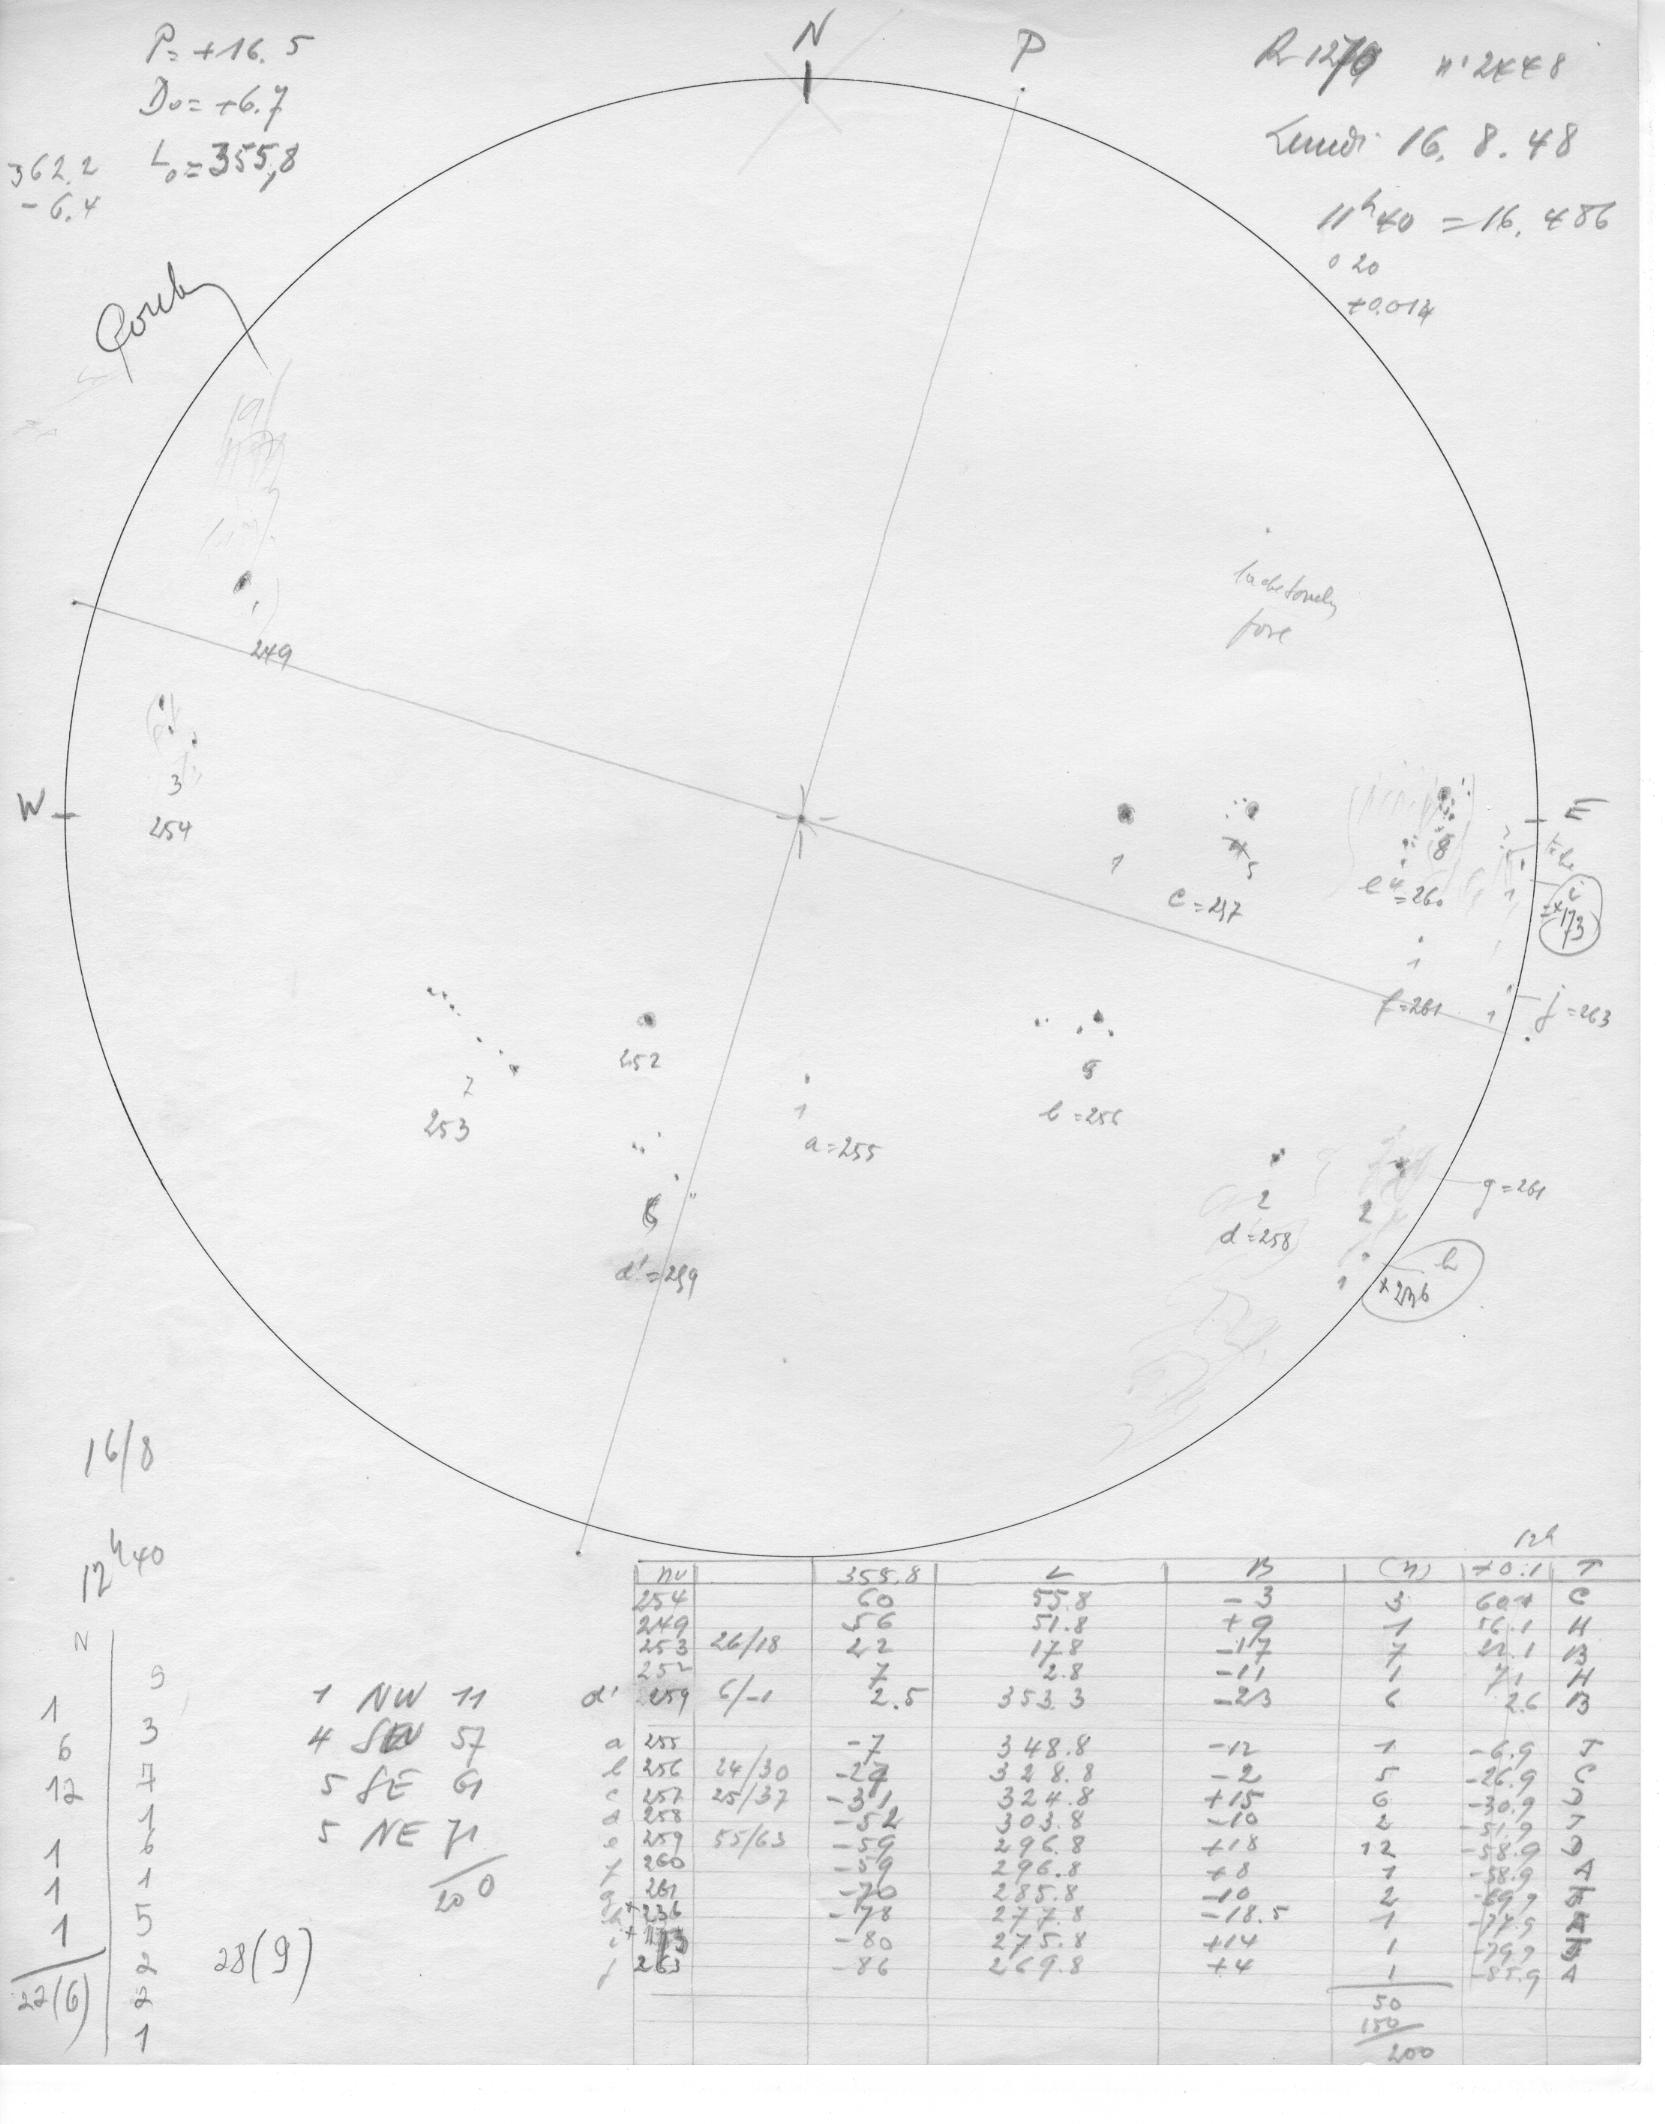 P=+16.5
D₀=+6.7
L₀=355,8
362.2
-6.4
N
P
R 1279 n° 2448
Lundi 16. 8. 48
11h40 = 16.486
0 20
+0.014
249
3
254
W
E
1
5
c=257
8
e
4
=260
1
i
173
1
f=261
1
j=263
252
7
253
1
a=255
5
b=256
2
d=258
2
g=261
6
d'=259
1
h
x236
16/8
12h40
N
S
1
6
12
1
1
1
22(6)
3
7
1
6
1
5
2
2
1
28(9)
1 NW 11
4 SW 57
5 SE 61
5 NE 71
200
12h
No 355.8 L B (n) +0.1 T
254 60 55.8 -3 3 60.1 C
249 56 51.8 +9 1 56.1 H
253 26/18 22 17.8 -17 7 22.1 B
252 7 2.8 -11 1 7.1 H
d' 259 6/-1 2.5 353.3 -23 6 2.6 B
a 255 -7 348.8 -12 1 -6.9 J
b 256 24/30 -27 328.8 -2 5 -26.9 C
c 257 25/37 -31 324.8 +15 6 -30.9 J
d 258 -52 303.8 -10 2 -51.9 J
e 259 55/63 -59 296.8 +18 12 -58.9 D
f 260 -59 296.8 +8 1 -58.9 A
g 261 -70 285.8 -10 2 -69.9
h x236 -78 277.8 -18.5 1 -77.9
i -80 275.8 +14 1 -79.9
j 263 -86 269.8 +4 1 -85.9 A
50
150
200